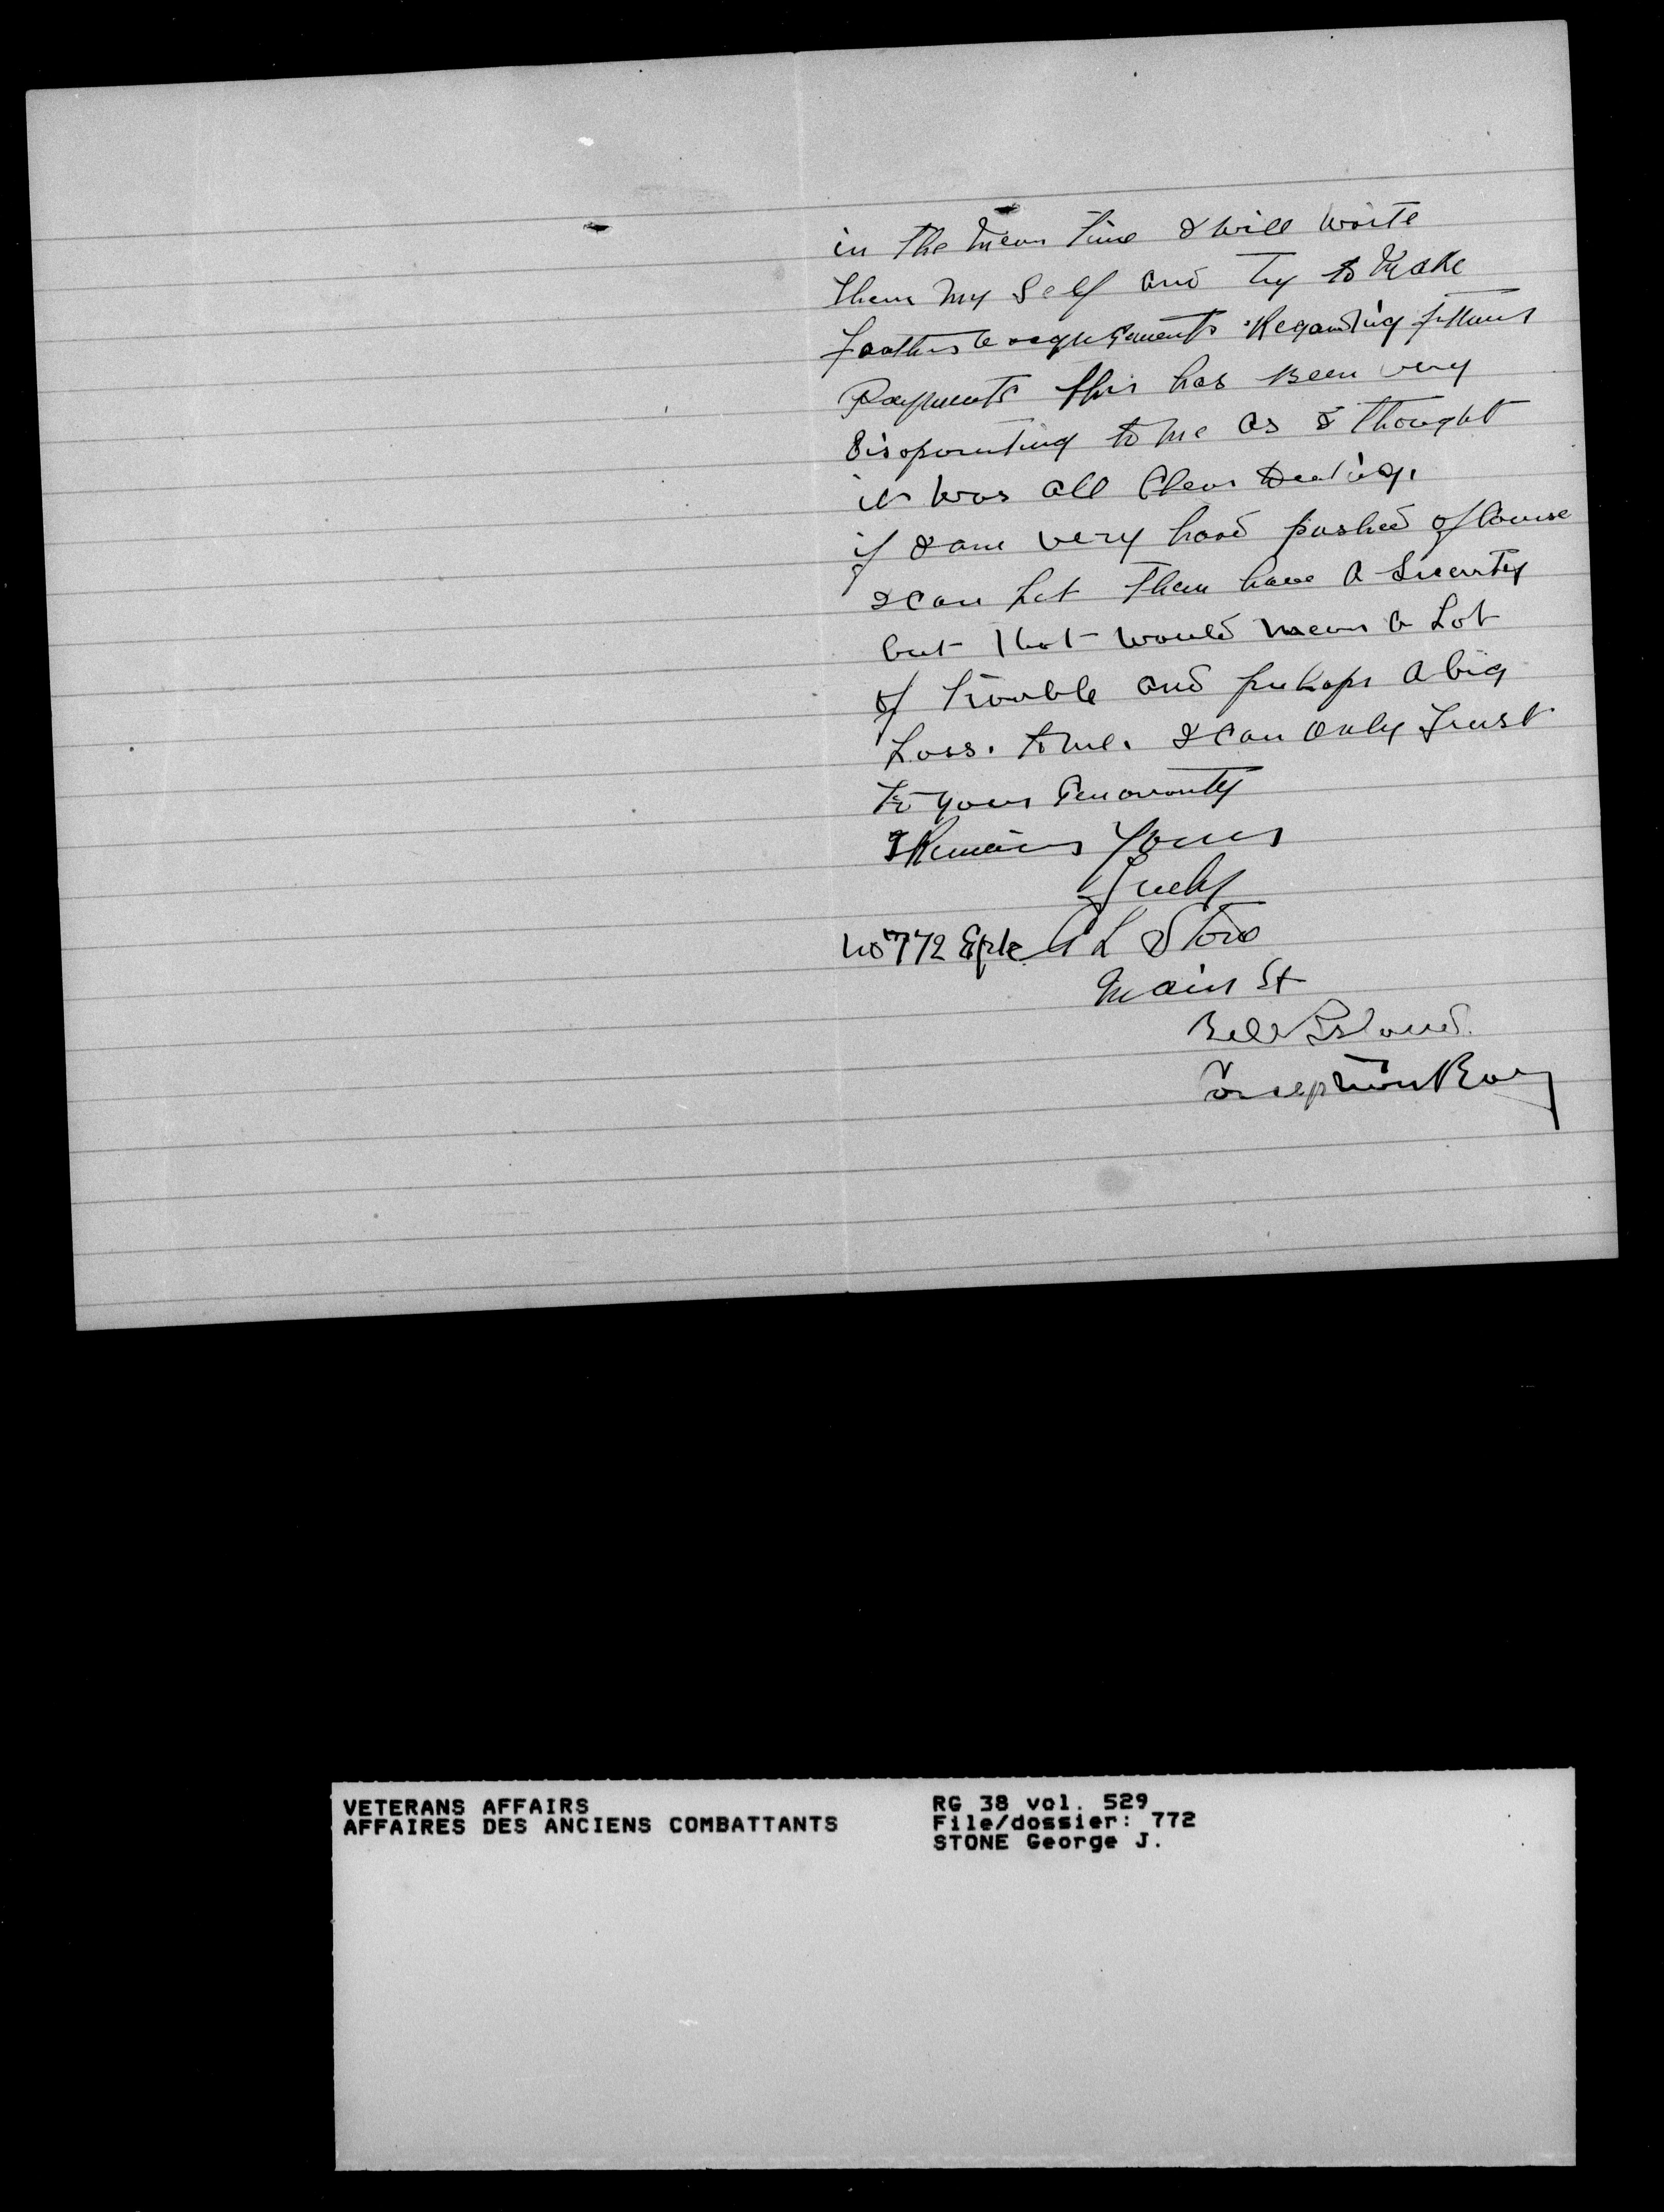 in the mean time I will write
them my self and try to make
Regarding future
Payments this has Been very
Disopointing to me as I thought
it was all Clear Dealing.
if I am very hard pushed of Course
I can Let them have a Security
but that would mean a Lot
of trouble and perhaps a big
Loss. to me. I can only Trust
to your
I Remains Yours
Truely
no 772
Main St
Bell Island.
Conception Bay
VETERANS AFFAIRS
AFFAIRES DES ANCIENS COMBATTANTS
RG 38 vol. 529
File/dossier: 772
STONE George J.